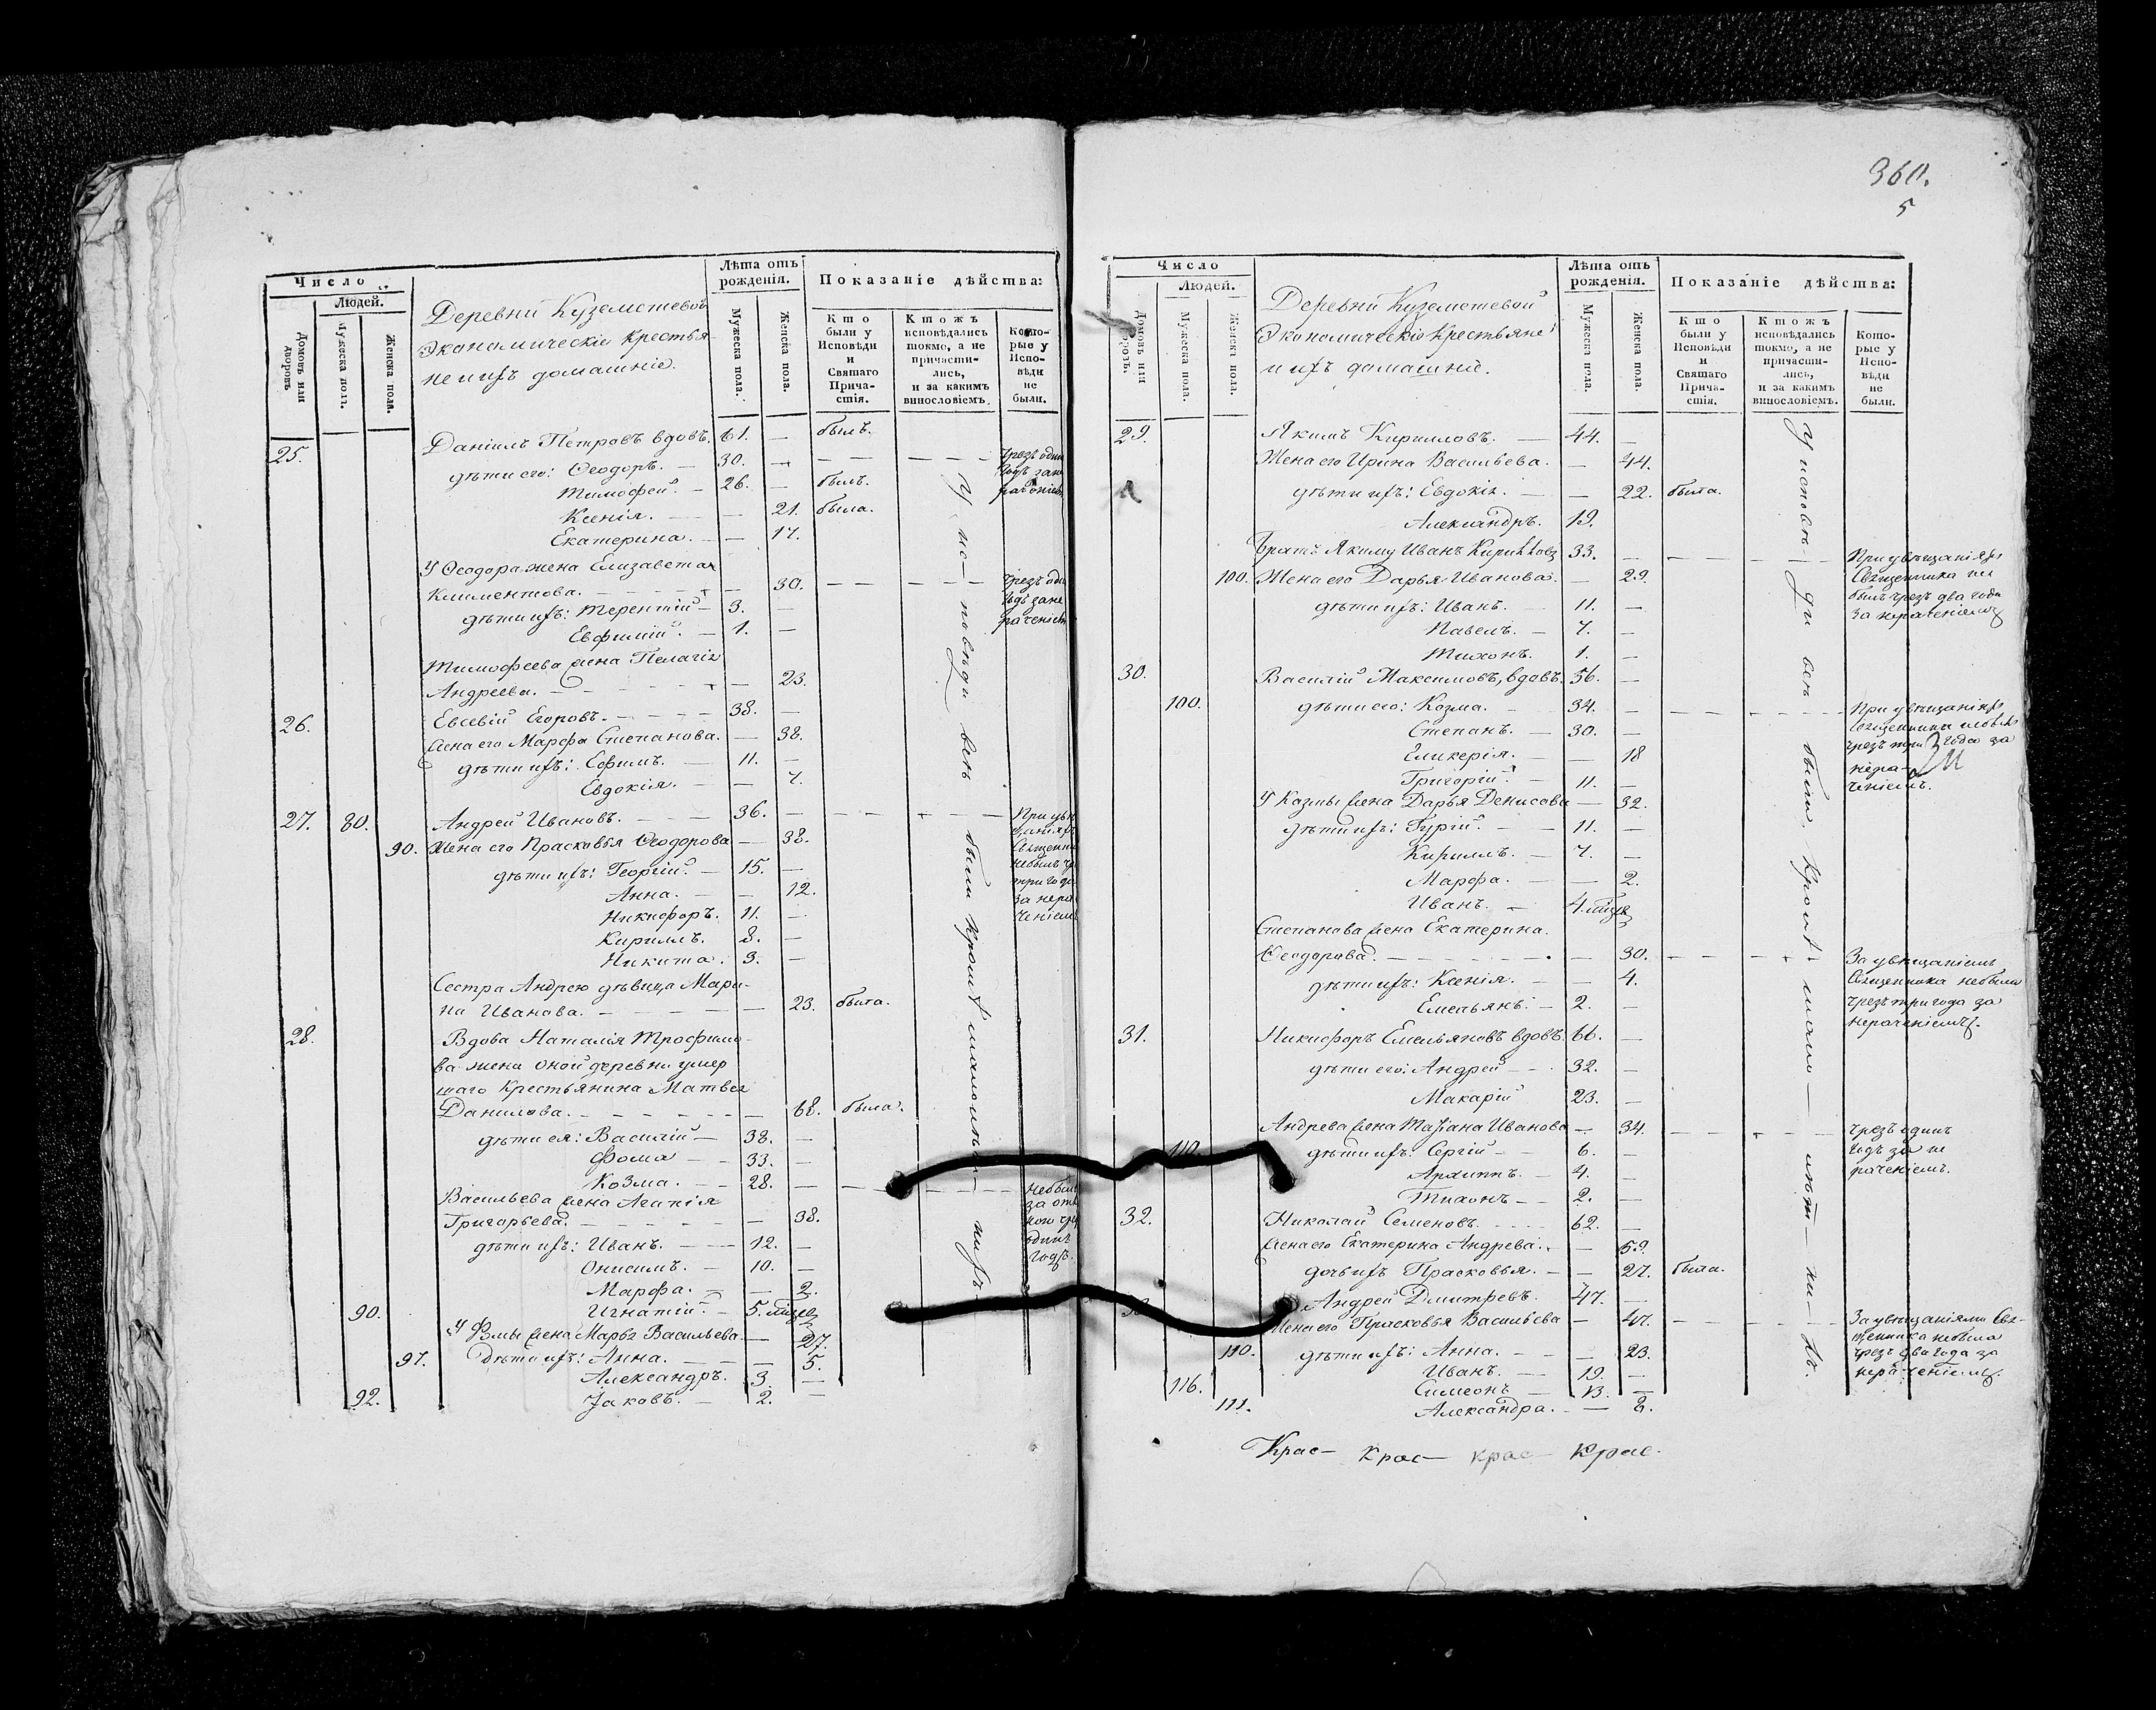 Число
Людей.
Домовъ или дворовъ
Мужеска пола.
Женска пола.
Деревни Куземетевой
Экономическіе крестья-
не и ихъ домашніе.
Лѣта отъ рожденія.
Мужеска пола.
Женска пола.
Показаніе дѣйства:
Кто были у Исповѣди и Святаго Прича-стія.
Ктожъ исповѣдались токмо, а не причасти-лись, и за какимъ винословіемъ.
Кото-рые у Испо-вѣди не были.
25. Даніилъ Петровъ вдовъ. 61. — былъ.
дѣти его: Ѳеодоръ. — 30. — чрезъ одинъ годъ за не раченіемъ
Тимоѳей. — 26. — былъ.
Ксенія. — — 21. была.
Екатерина. — — 17.
У Ѳеодора жена Елизавета
Климентова. — 30. чрезъ одинъ годъ за не раченіемъ
дѣти ихъ: Терентій — 3. —
Евфимій. — 1. —
Тимофеева жена Пелагія
Андреева. — — 23.
26. Евсевій Егоровъ. — 38. —
Жена его Марѳа Степанова. — 38.
дѣти ихъ: Ефимъ. — 11. —
Евдокія. — — 7.
27. 80. Андрей Ивановъ. — 36. — При увѣ щаніяхъ Священни небылъ чр три года за нера ченіемъ
90. Жена его Прасковья Ѳеодорова — 38.
дѣти ихъ: Георгій. — 15. —
Анна. — — 12.
Никифоръ. 11. —
Кириллъ. 8. —
Никита. 3. —
Сестра Андрею дѣвица Мари-
на Иванова. — — 23. была.
28. Вдова Наталія Трофимо-
ва жена оной деревни умер
шаго крестьянина Матвея
Данилова. — — 68. была.
дѣти ея: Василій — 38. —
Фома — 33. —
Козма. — 28. — небылъ за отл кою чр одинъ годъ.
Васильева жена Агапія
Григорьева. — — 38.
дѣти ихъ: Иванъ. — 12. —
Онисимъ. — 10. —
Марѳа. — — 2.
90. Игнатій. — 5. мцев
У Фмы жена Марья Васильева — 27.
97. Дѣти ихъ: Анна. — — 5.
Александръ. 3. —
92. Іаковъ. — 2. —
У ис— повѣди всѣ были кромѣ малолѣт— нихъ
360.
5
Число
Людей.
Домовъ или дворовъ.
Мужеска пола.
Женска пола.
Деревни Куземетевой
Экономическіе крестьяне
и ихъ домашніе.
Лѣта отъ рожденія.
Мужеска пола.
Женска пола.
Показаніе дѣйства:
Кто были у Исповѣди и Святаго Прича-стія.
Ктожъ исповѣдались токмо, а не причасти-лись, и за какимъ винословіемъ.
Кото-рые у Испо-вѣди не были.
29. Якимъ Кирилловъ. — 44. —
Жена его Ирина Васильева. — 44.
дѣти ихъ: Евдокія. — — 22. была.
Александръ. 19.
Братъ Якиму Иванъ Кириловъ 33. — При увѣщаніяхъ Священника не былъ чрезъ два года за нераченіемъ
100. Жена его Дарья Иванова. — 29.
дѣти ихъ: Иванъ. — 11. —
Павелъ. — 7. —
Тихонъ. 1. —
30. Василій Максимовъ, вдовъ. 56. —
100. дѣти его: Козма. — 34. — При увѣщаніяхъ священника небылъ чрезъ три 3 года за нера-ченіемъ.
Степанъ. — 30. —
Гликерія. — — 18
Григорій. 11. —
У Козмы жена Дарья Денисова — 32.
дѣти ихъ: Гурій. — 11. —
Кириллъ. — 7. —
Марѳа. — — 2.
Иванъ. — 4. мцев
Степанова жена Екатерина
Ѳеодорова. — — 30. За увѣщаніемъ Священника небыла чрезъ три года за нераченіемъ.
дѣти ихъ: Ксенія. — — 4.
Емельянъ. — 2. —
31. Никифоръ Емельяновъ вдовъ. 66. —
дѣти его: Андрей — 32. —
Макарій 23. —
Андреева жена Татіана Иванова — 34. чрезъ одинъ годъ за не раченіемъ.
110. дѣти ихъ: Сергій — 6. —
Архиппъ. — 4. —
Тихонъ — 2. —
32. Николай Семеновъ. 62. —
Жена его Екатерина Андрева. — 59.
дочь ихъ Прасковья. — — 27. была.
33. Андрей Дмитревъ. 47. —
Жена его Прасковья Васильева — 47. За увѣщаніями Свя-щенника небыла чрезъ два года за нераченіемъ.
110. дѣти ихъ: Анна. — — 23.
Иванъ. — 19. —
116. Симеонъ — 13. —
111. Александра. — — 2.
У исповѣ— ди всѣ были, кромѣ мало— лѣт— ни— хъ.
Крас— крас— крас— крас.